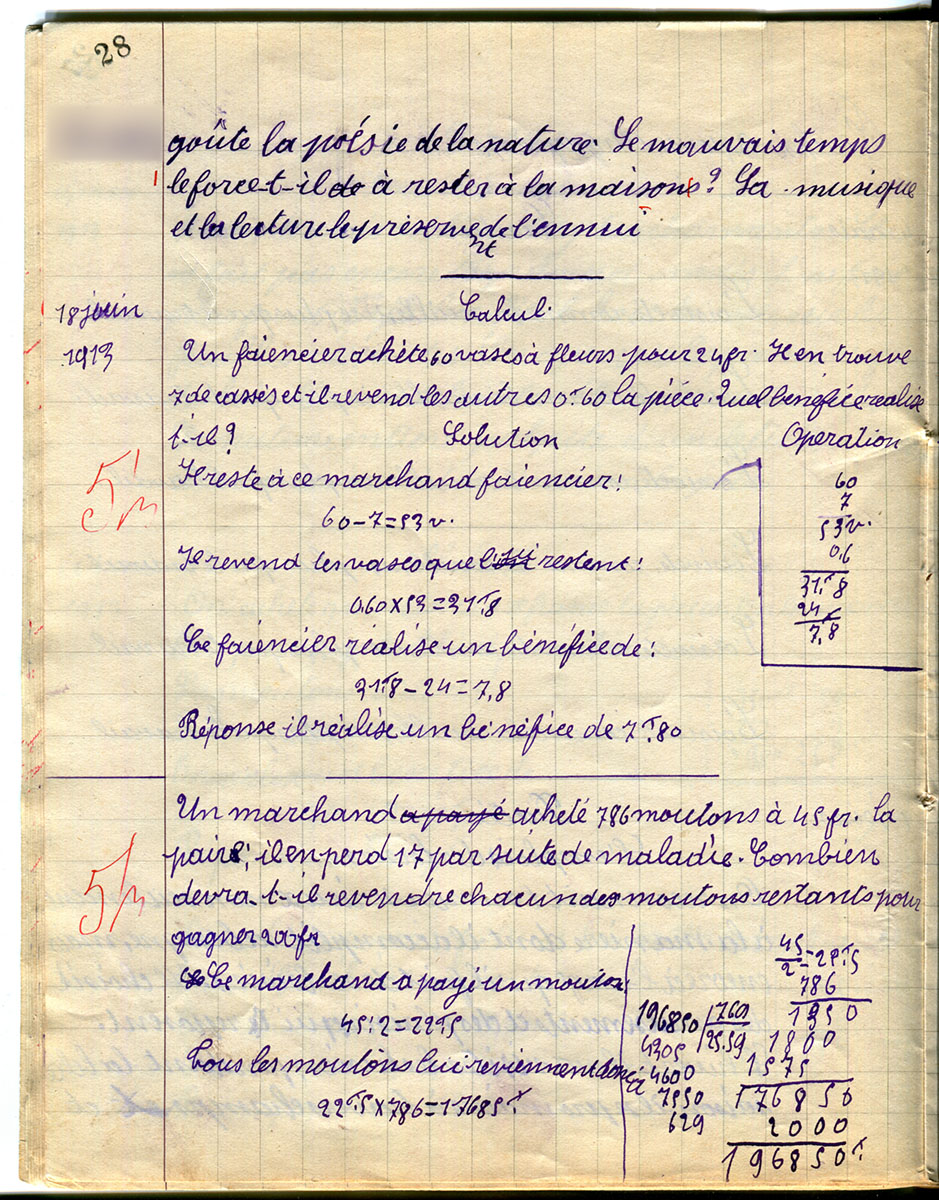 28
goûte la poésie de la nature. Le mauvais temps
le force-t-il de à rester à la maison? La musique
et la lecture le préservent de l'ennui
18 juin
1913
Calcul.
Un faiencier achète 60 vases à fleurs pour 24 fr. Il en trouve
7 de cassés et il revend les autres 0f60 la pièce. Quel bénéfice réalise
t-il?
Solution
Operation
5/5
Il reste à ce marchand faiencier:
60-7=53v.
Il revend les vases que lui restent:
0,60×53=31f8
Ce faiencier réalise un bénéfice de:
31f8-24=7,8
Réponse il réalise un bénéfice de 7f.80
60
7
53v.
0,6
31f8
24
7,8
Un marchand a payé acheté 786 moutons à 45 fr. la
paire; il en perd 17 par suite de maladie. Combien
devra-t-il revendre chacun des moutons restants pour
gagner 200 fr
5/5
Ce marchand a payé un mouton
45:2=22f5
Tous les moutons lui reviennent donc à
22f5×786=17685f
45/2=22f5
786
1350
1800
1575
176850
2000
196850f
196850 | 769
4305 | 25.59
4600
7550
629